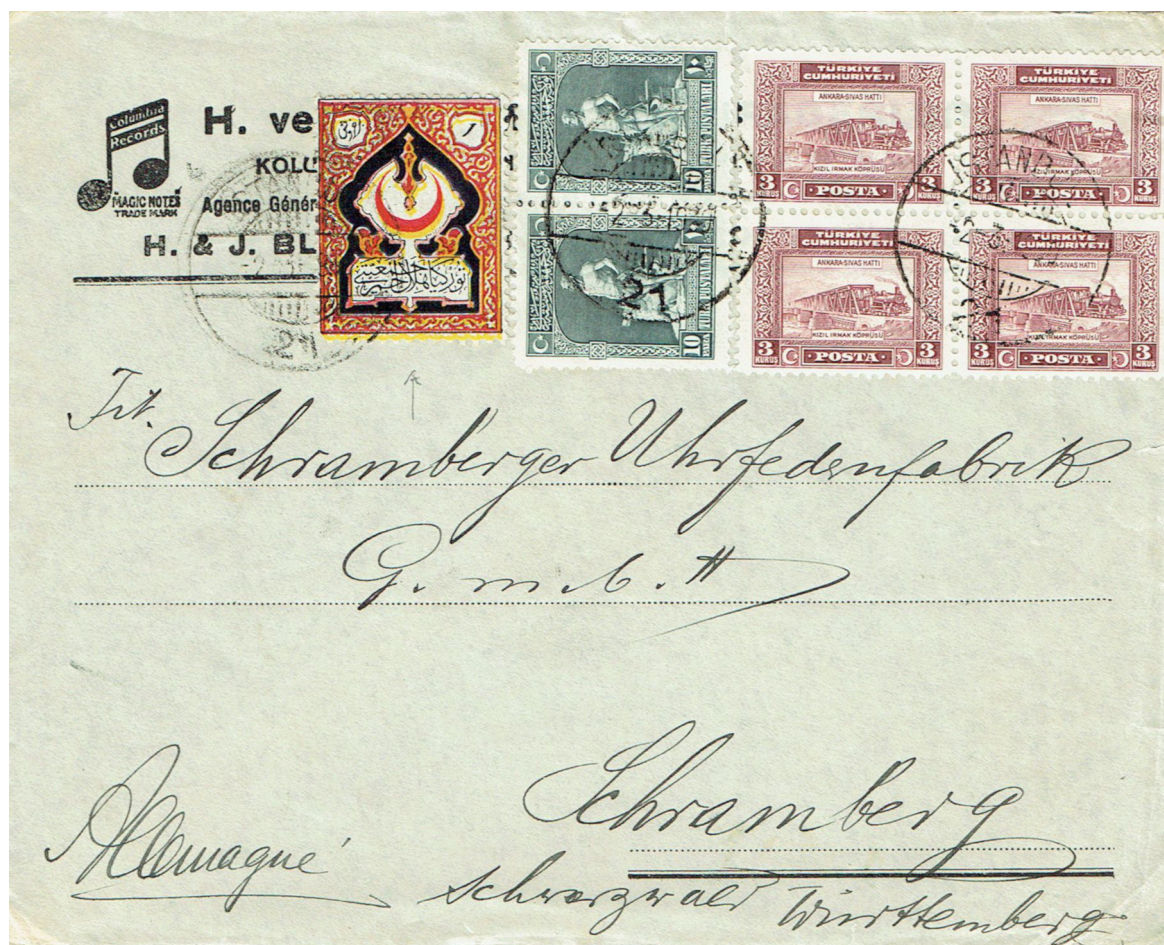 Columbia
Records
MAGIC NOTES
TRADE MARK
H. ve
KOLU
Agence Génér
H. & J. BL
10
PARA
TÜRK POSTALARI
10
PARA
TÜRK POSTALARI
TÜRKİYE
CUMHURİYETİ
ANKARA-SIVAS HATTI
KIZIL IRMAK KÖPRÜSÜ
3 KURUŞ POSTA 3 KURUŞ
TÜRKİYE
CUMHURİYETİ
ANKARA-SIVAS HATTI
3 KURUŞ POSTA 3 KURUŞ
TÜRKİYE
CUMHURİYETİ
ANKARA-SIVAS HATTI
KIZIL IRMAK KÖPRÜSÜ
3 KURUŞ POSTA 3 KURUŞ
TÜRKİYE
CUMHURİYETİ
ANKARA-SIVAS HATTI
3 KURUŞ POSTA 3 KURUŞ
21
21
Tit.
Schramberger Uhrfedernfabrik
G.m.b.H
Schramberg
Allemagne
Schwarzwald Württemberg